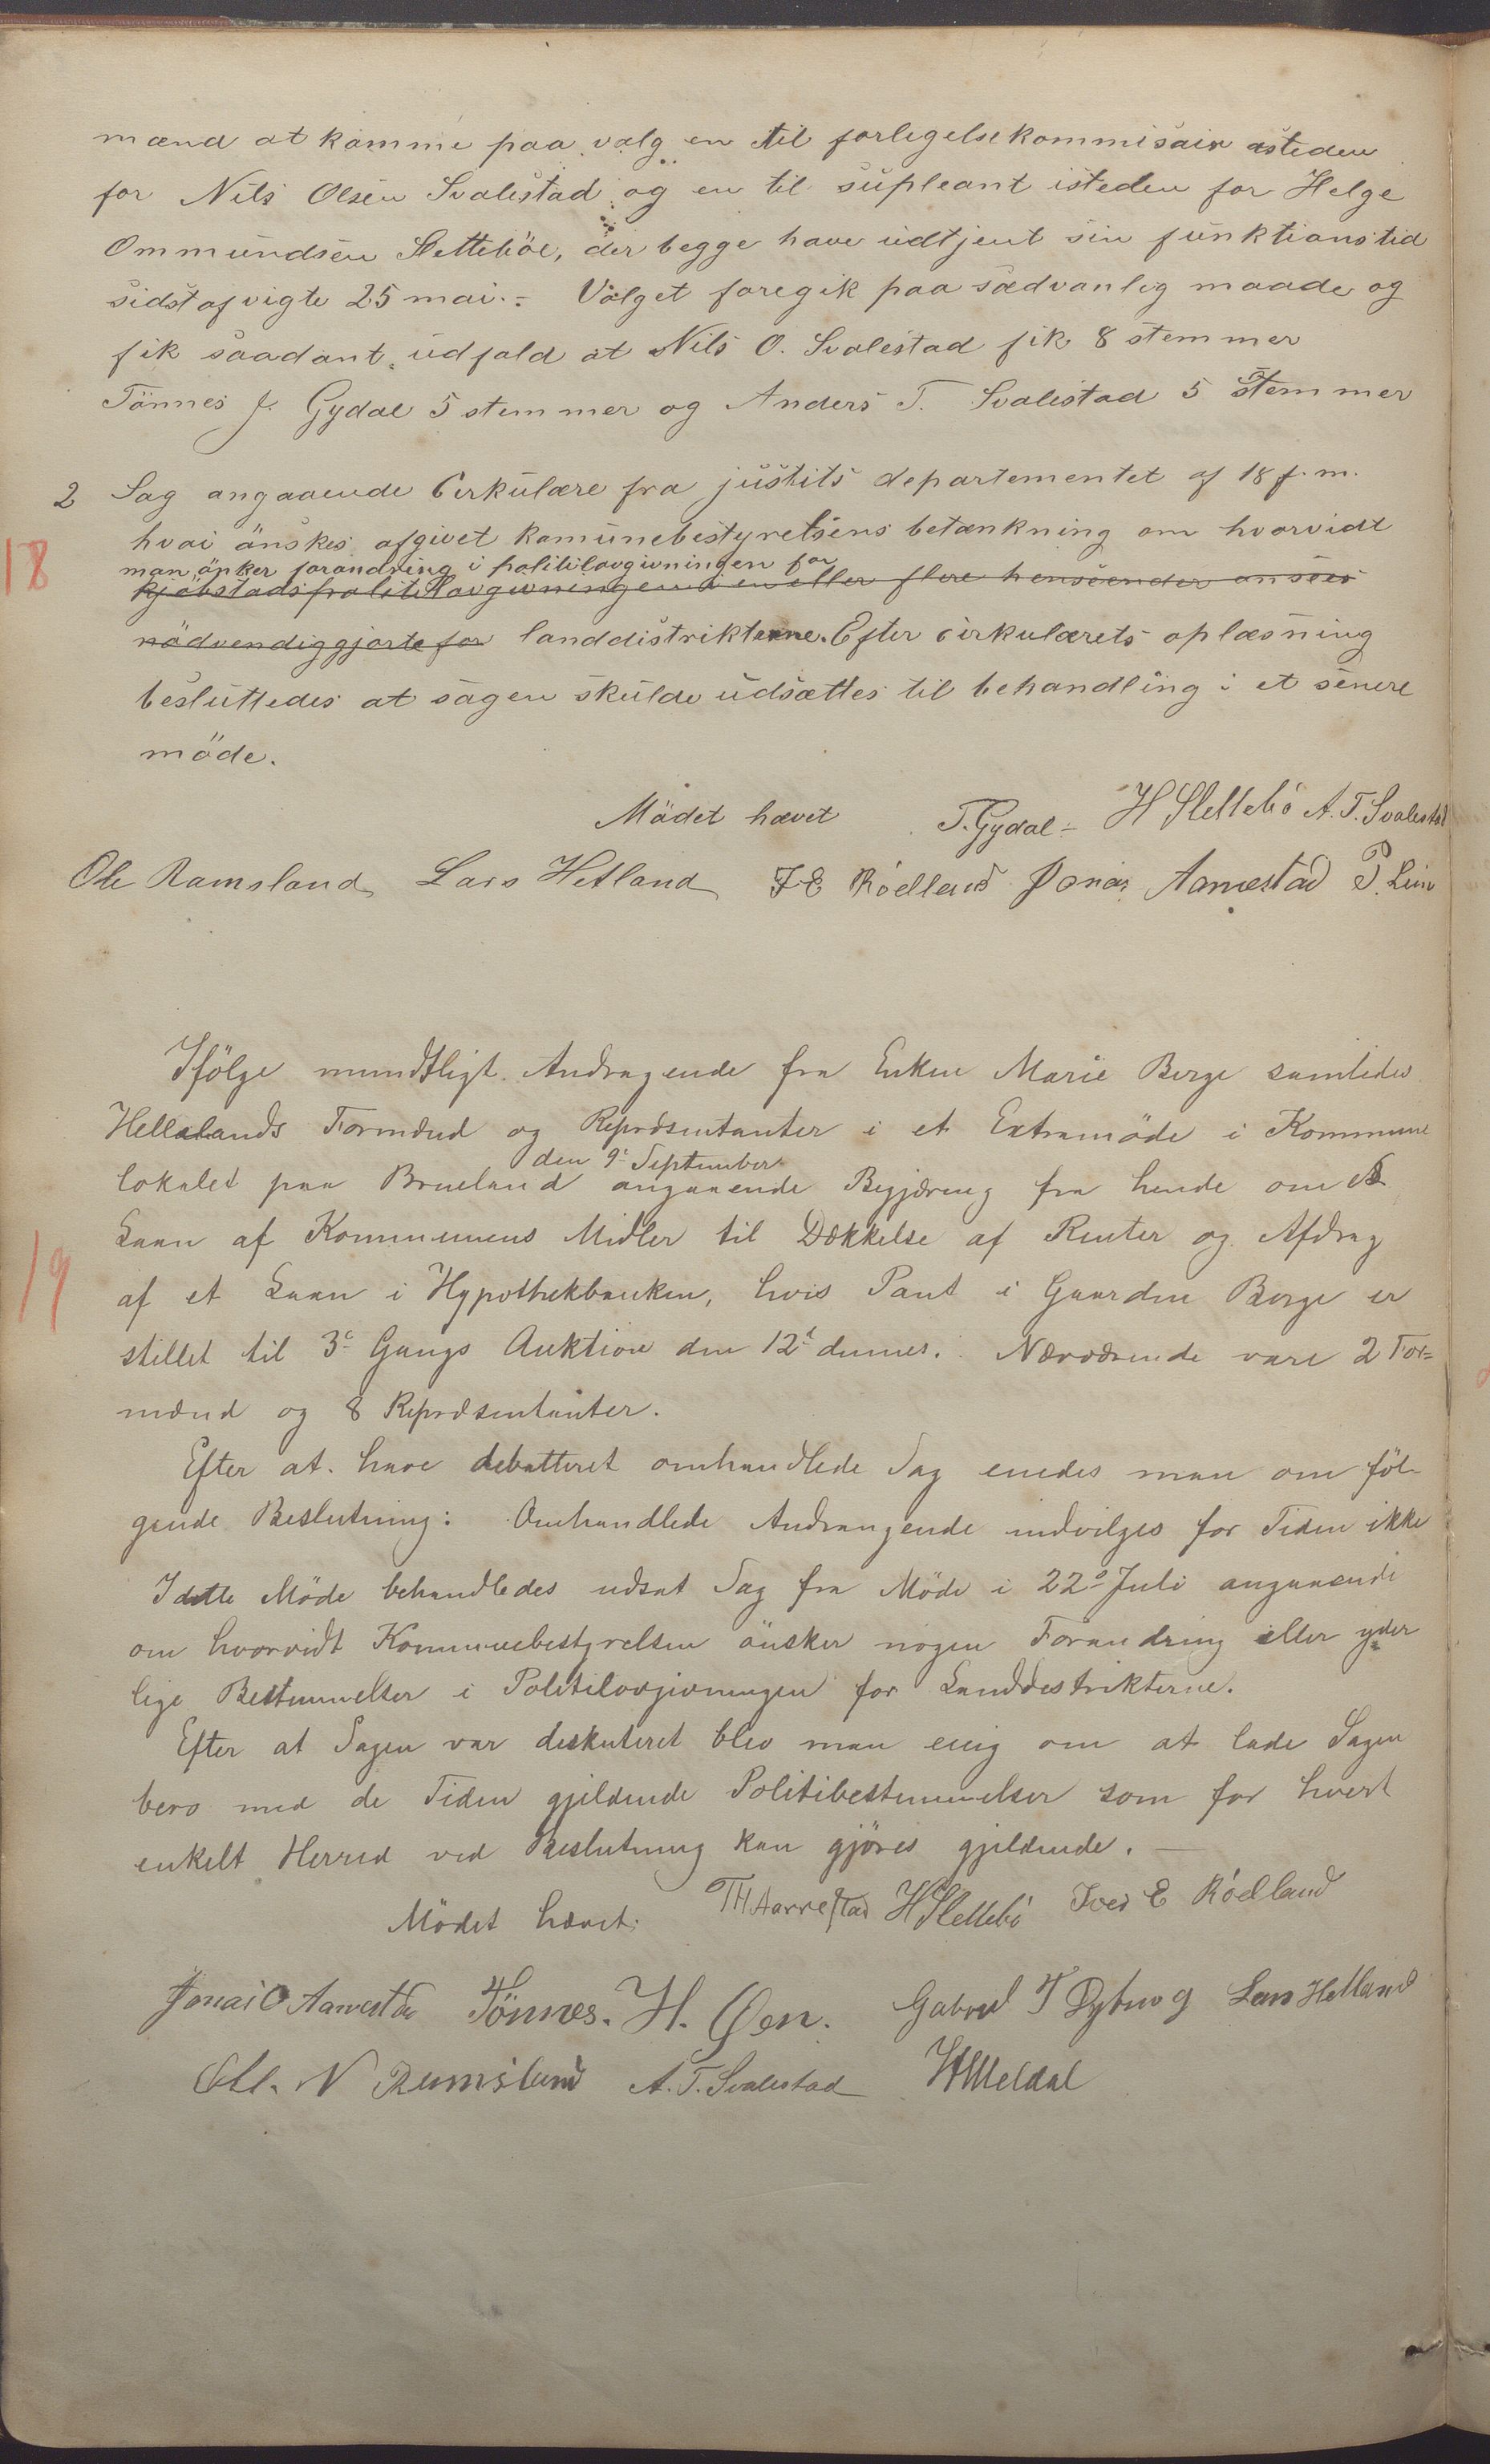 mænd at komme paa valg en til forligelsekommisair isteden
for Nils Olsen Svalestad og en til supleant isteden for Helge
Ommundsen Sletteböe, der begge have udtjent sin funktionstid
sidstafvigte 25 mai. - Valget foregik paa sædvanlig maade og
fik saadant udfald at Nils O. Svalestad fik 8 stemmer
Tönnes J. Gydal 5 stemmer og Anders T. Svalestad 5 stemmer
2 Sag angaaende Cirkulære fra justits departementet af 18 f. m.
hvai önskes afgivet komunebestyrelsens betænkning om hvorvidt
18
man önker forandring i politilovgivningen for
kjöbstadspolitilovgivningen i en eller flere henseender ansees
nödvendiggjorte for landdistrikterne. Efter cirkulærets oplæsning
besluttedes at sagen skulde udsættes til behandling i et senere
möde.
Mödet hævet T. Gydal - H Slettebö A. T. Svalestad
Ole Ramsland Lars Hetland I E Röelland Jonas Aarrestad P.
Ifölge mundtligt Andragende fra Enken Marie Berge samledes
Hellelands Formænd og Repræsentanter i et Extramöde i Kommune
den 9de September
lokalet paa Brueland angaaende Begjæring fra hende om et
Laan af Kommunens Midler til Dækkelse af Renter og Afdrag
19
af et Laan i Hypothekbanken, hvis Pant i Gaarden Berge er
stillet til 3e Gangs Auktion den 12t dennes. Nærværende vare 2 For=
mænd og 8 Repræsentanter.
Efter at have debatteret omhandlede Sag enedes man om föl-
gende Beslutning: Omhandlede Andrangende indvilges for Tiden ikke
I dette Möde behandledes udsat Sag fra Möde i 22de Juli angaaende
om hvorvidt Kommunebestyrelsen önsker nogen Forandring eller yder
lige Bestemmelser i Politilovgivningen for Landdestrikterne.
Efter at Sagen var diskuteret blev man enig om at lade Sagen
bero med de Tiden gjeldende Politibestemmelser som for hvert
enkelt Herred ved Beslutning kan gjöres gjeldende. -
Mödet hævet. TH Aarrestad H Slettebö Iver E Röelland
Jonas O Aarrestad Tönnes. H. Øen. Gabriel T Dybing Lars Hetland
Ole. N Ramsland A. T. Svalestad